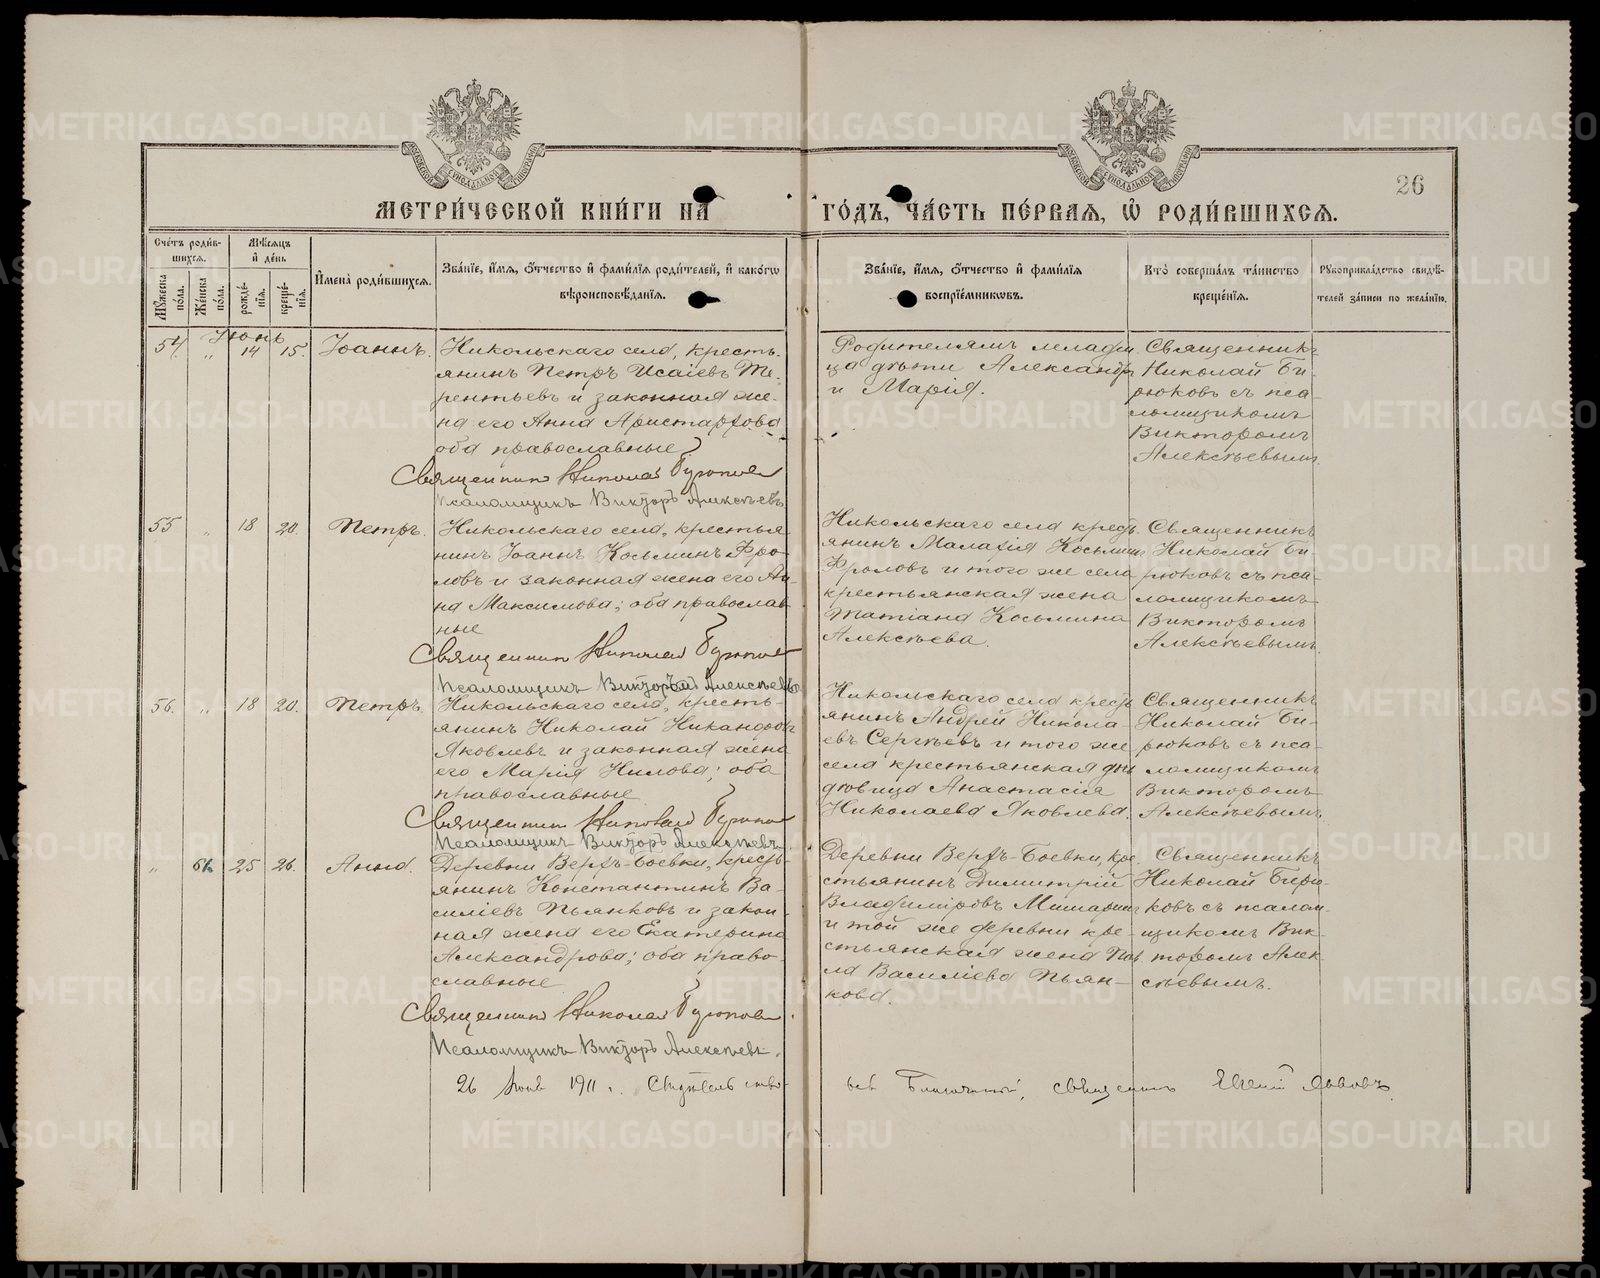 26
МЕТРИ́ЧЕСКОЙ КНИ́ГИ НА ГО́ДЪ, ЧА́СТЬ ПЕ́РВАЯ, Ѡ РОДИ́ВШИХСЯ.
Счетъ роди́вшихся.
Му́жеска по́ла.
Же́нска по́ла.
Мѣ́сяцъ и де́нь
рожде́нія.
креще́нія.
Имена̀ роди́вшихся.
Зва́ніе, и́мя, о́тчество и фами́лія роди́телей, и како́гѡ
вѣроисповѣ́данія.
Зва́ніе, и́мя, о́тчество и фами́лія
воспріе́мниковъ.
Кто̀ соверша́лъ та́инство
креще́нія.
Рукоприкла́дство свидѣ́-
телей за́писи по жела́нію.
Іюнь
54. " 14 15. Іоаннъ.
Никольскаго села, кресть-
янинъ Петръ Исаіевъ Те-
рентьевъ и законная же-
на его Анна Аристархова
оба православные
Священникъ Николай Бирюковъ
Псаломщикъ Викторъ Алексѣевъ
Родителямъ
дѣти Александръ
и Марія.
Священникъ
Николай Би-
рюковъ съ пса-
ломщикомъ
Викторомъ
Алексѣевымъ.
55 " 18 20. Петръ.
Никольскаго села, крестья
нинъ Іоаннъ Косьминъ Фро-
ловъ и законная жена его Ан-
на Максимова; оба православ
ные
Священникъ Николай Бирюковъ
Псаломщикъ Викторъ Алексѣевъ
Никольскаго села кресть
янинъ Малахія Косьминъ
Фроловъ и того же села
крестьянская жена
Татіана Косьмина
Алексѣева.
Священникъ
Николай Би-
рюковъ съ пса-
ломщикомъ
Викторомъ
Алексѣевымъ.
56. " 18 20. Петръ.
Никольскаго села, кресть-
янинъ Николай Никандровъ
Яковлевъ и законная жена
его Марія Нилова; оба
православные
Священникъ Николай Бирюковъ
Псаломщикъ Викторъ Алексѣевъ.
Никольскаго села кресть
янинъ Андрей Никола-
евъ Сергѣевъ и того же
села крестьянская дѣ
дѣвица Анастасія
Николаева Яковлева.
Священникъ
Николай Би-
рюковъ съ пса-
ломщикомъ
Викторомъ
Алексѣевымъ.
" 25 26. Анна.
Деревни Верхъ-Боевки, кресть-
янинъ Константинъ Ва-
силіевъ Пьянковъ и закон-
ная жена его Екатерина
Александрова; оба право-
славные
Священникъ Николай Бирюковъ
Псаломщикъ Викторъ Алексѣевъ.
Деревни Верхъ-Боевки, кре
стьянинъ Димитрій
Владиміровъ
и той же деревни кре-
стьянская жена
Василіева Пьян-
кова.
Священникъ
Николай Бирю-
ковъ съ псалом-
щикомъ Вик-
торомъ Алек-
сѣевымъ.
26 1911 г. Свидѣтельство-
валъ Благочинный, священникъ Евгеній Львовъ.
METRIKI.GASO-URAL.RU